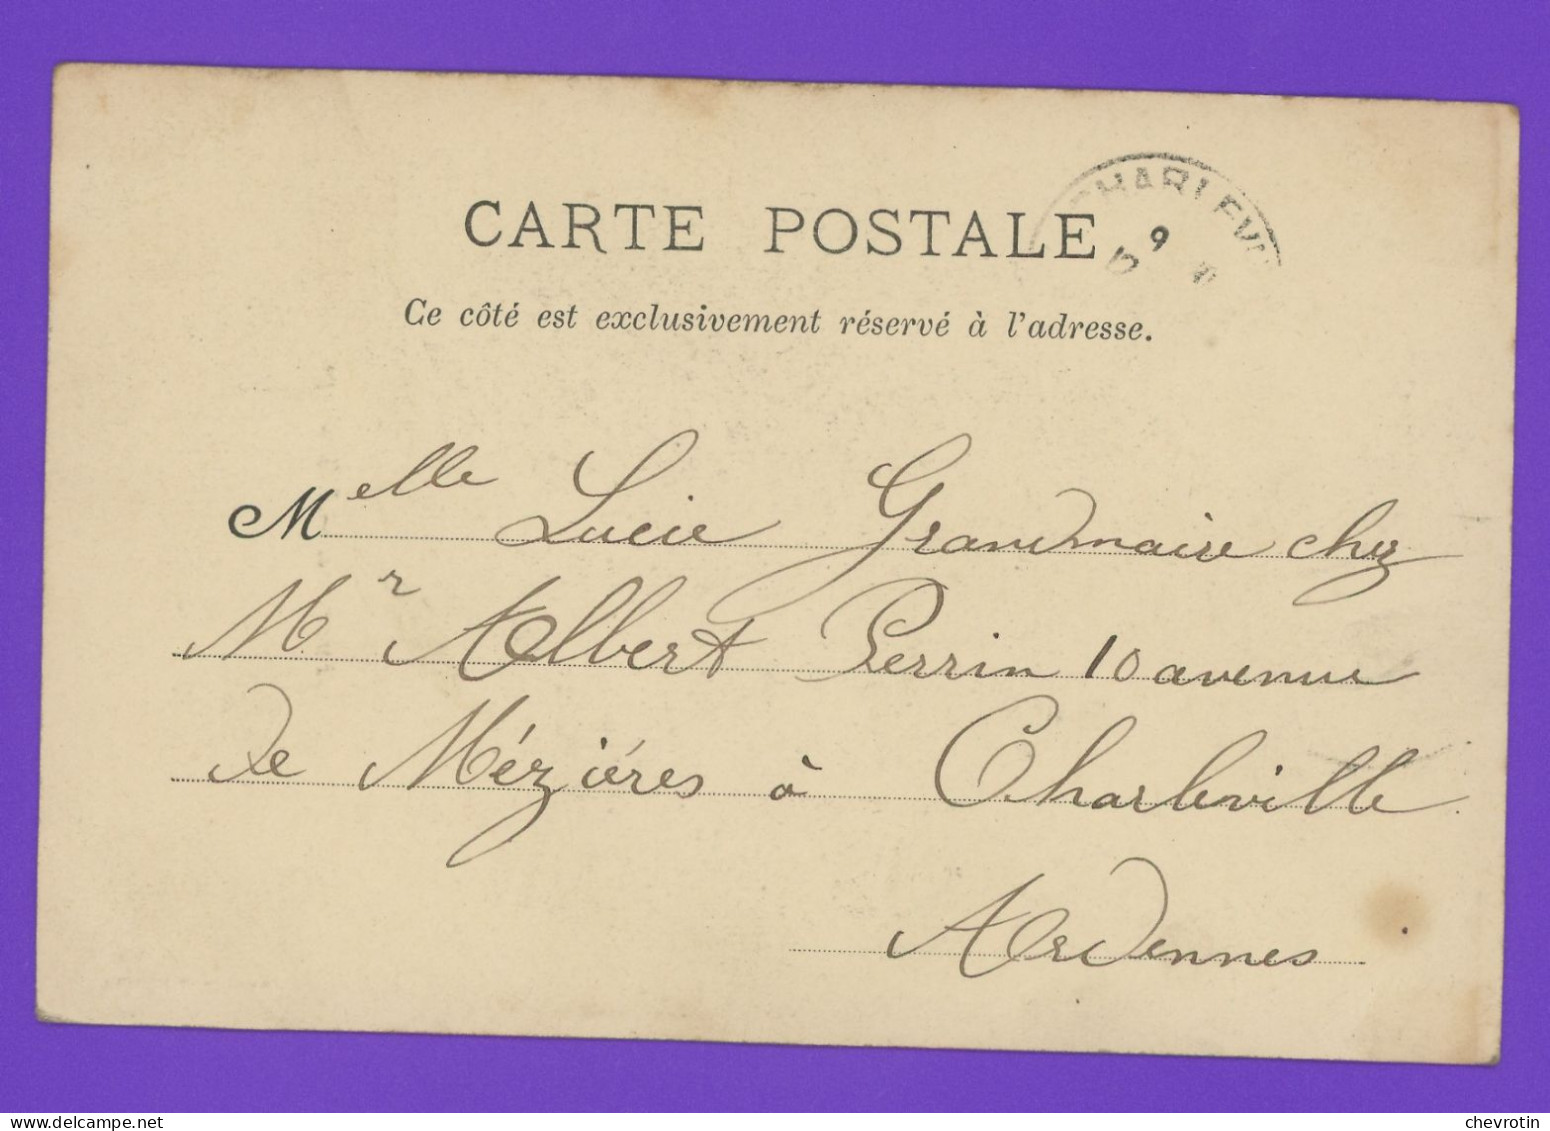 CARTE POSTALE
Ce côté est exclusivement réservé à l'adresse.
Melle Lucie Grandmaire chez
Mr Albert Perrin 10 avenue
de Méziéres à Charleville
Ardennes
delcampe.net
chevrotin